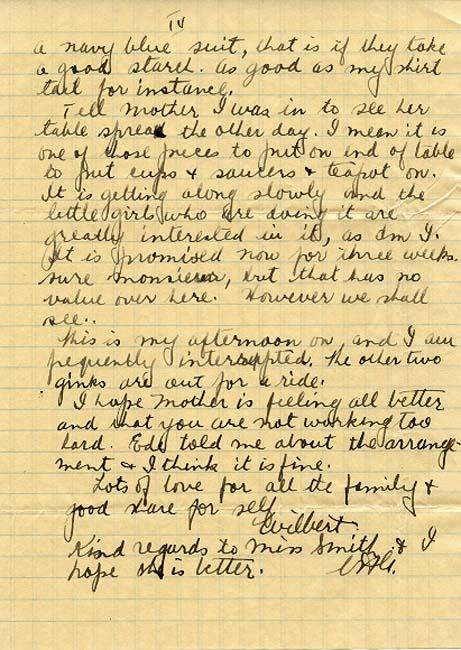 IV
a navy blue suit, that is if they take
a good starch. as good as my shirt
tail for instance.
Tell Mother I was in to see her
table spread the other day. I mean it is
one of those pieces to put on end of table
to put cups & saucers & teapot on.
It is getting along slowly and the
little girls who are doing it are
greatly interested in it, as am I.
It is promised now for three weeks.
sure monsieur, but that has no
value over here. However we shall
see..
This is my afternoon on, and I am
frequently interrupted. The other two
ginks are out for a ride.
I hope Mother is feeling all better
and that you are not working too
hard. Eds told me about the arrange-
ment & I think it is fine.
Lots of love for all the family &
good share for self
Kind regards to Miss Smith & I
hope she is better.